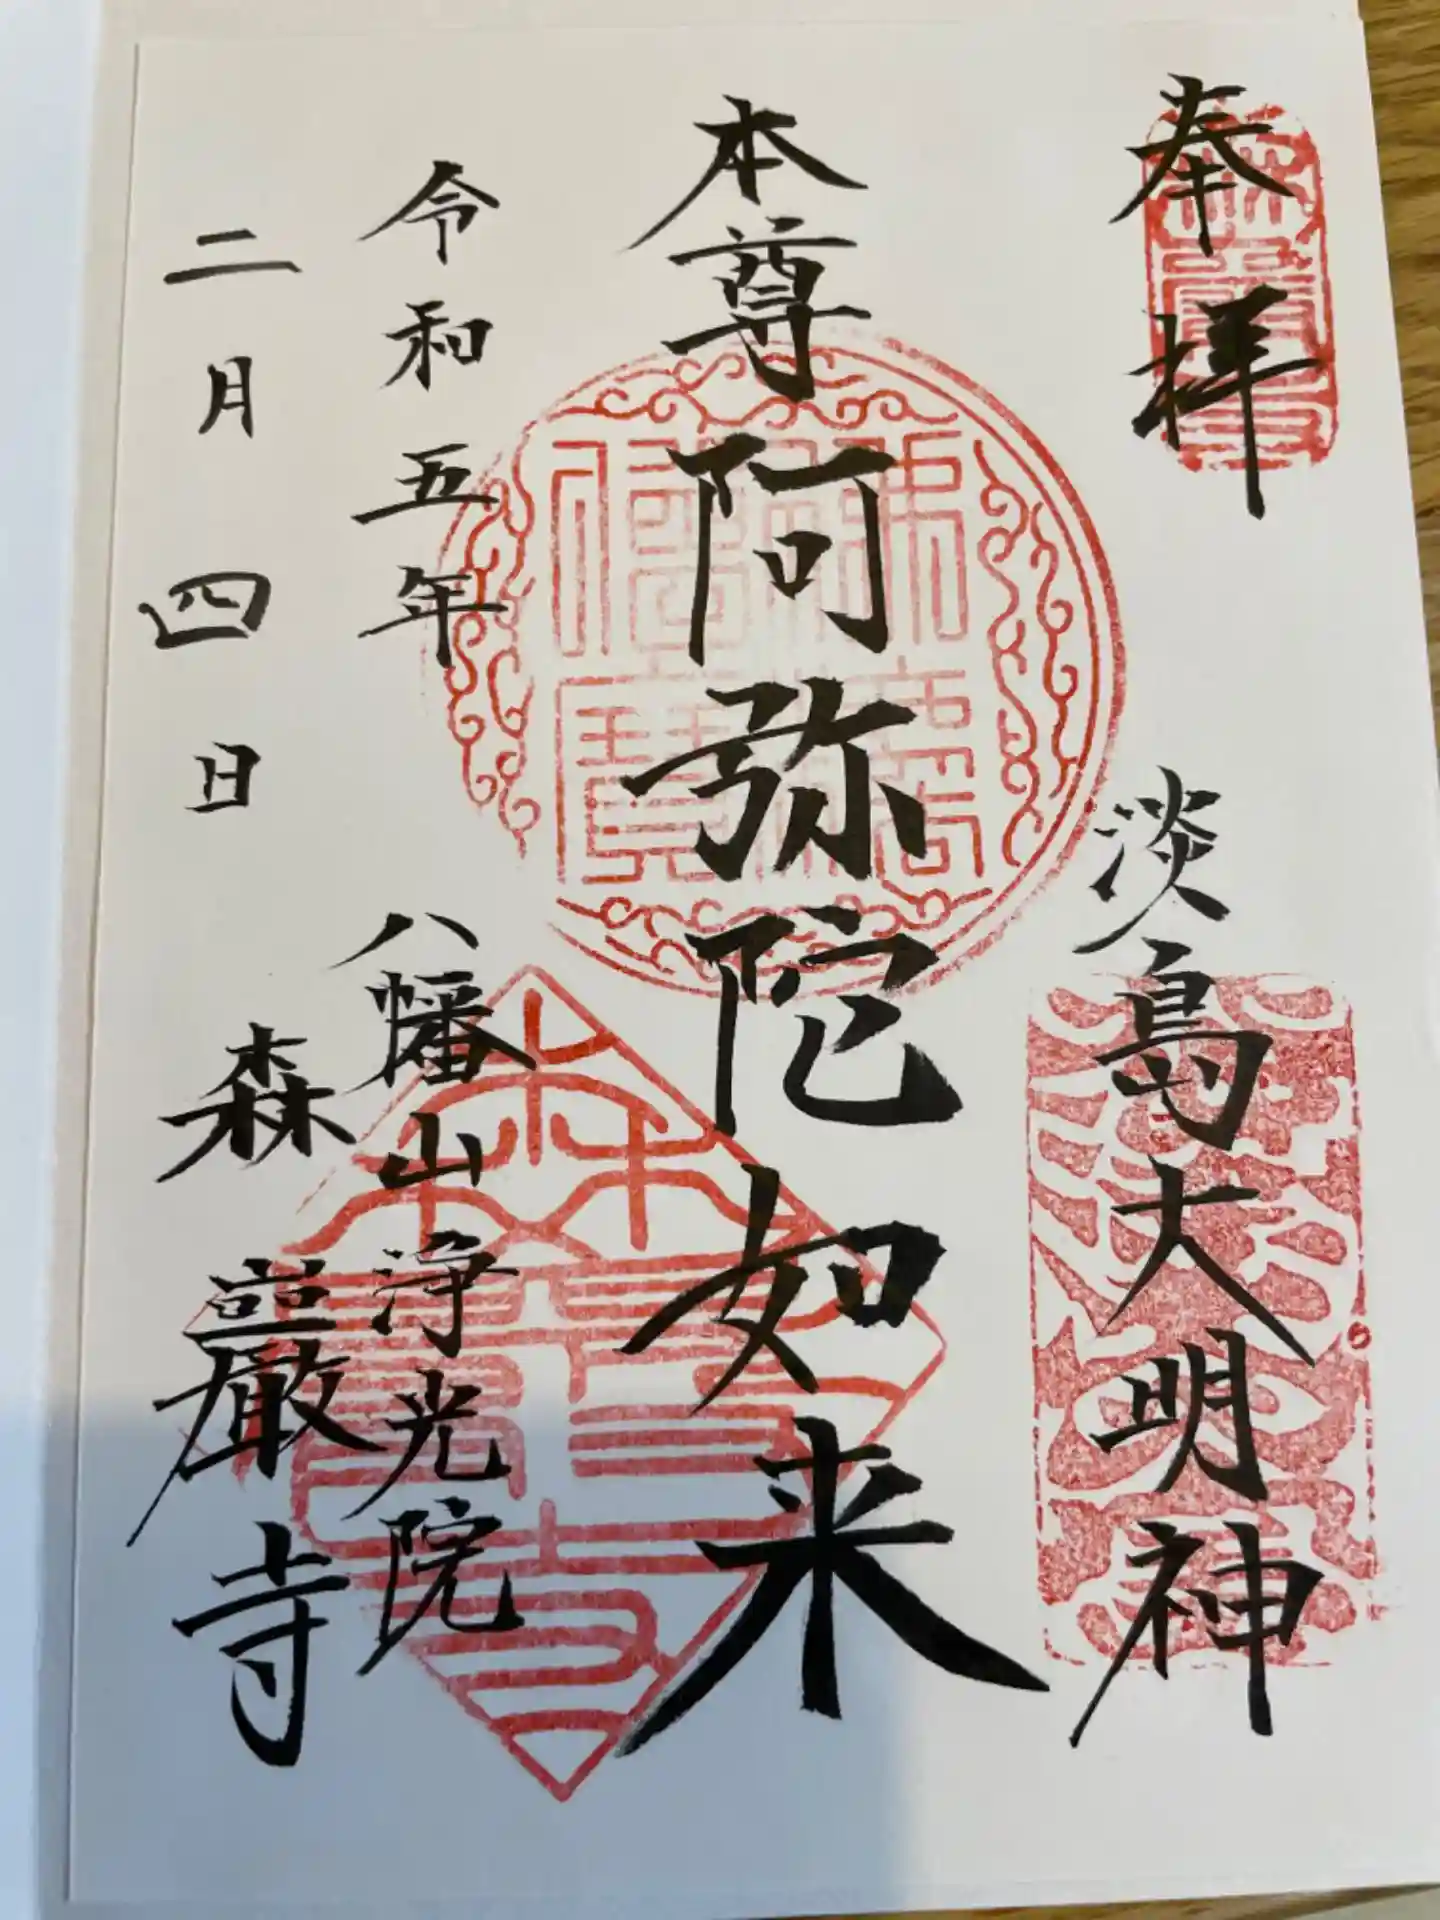 奉拝
淡島大明神
本尊阿弥陀如来
令和五年
二月四日
八幡山浄光院
森巌寺
佛法僧寳